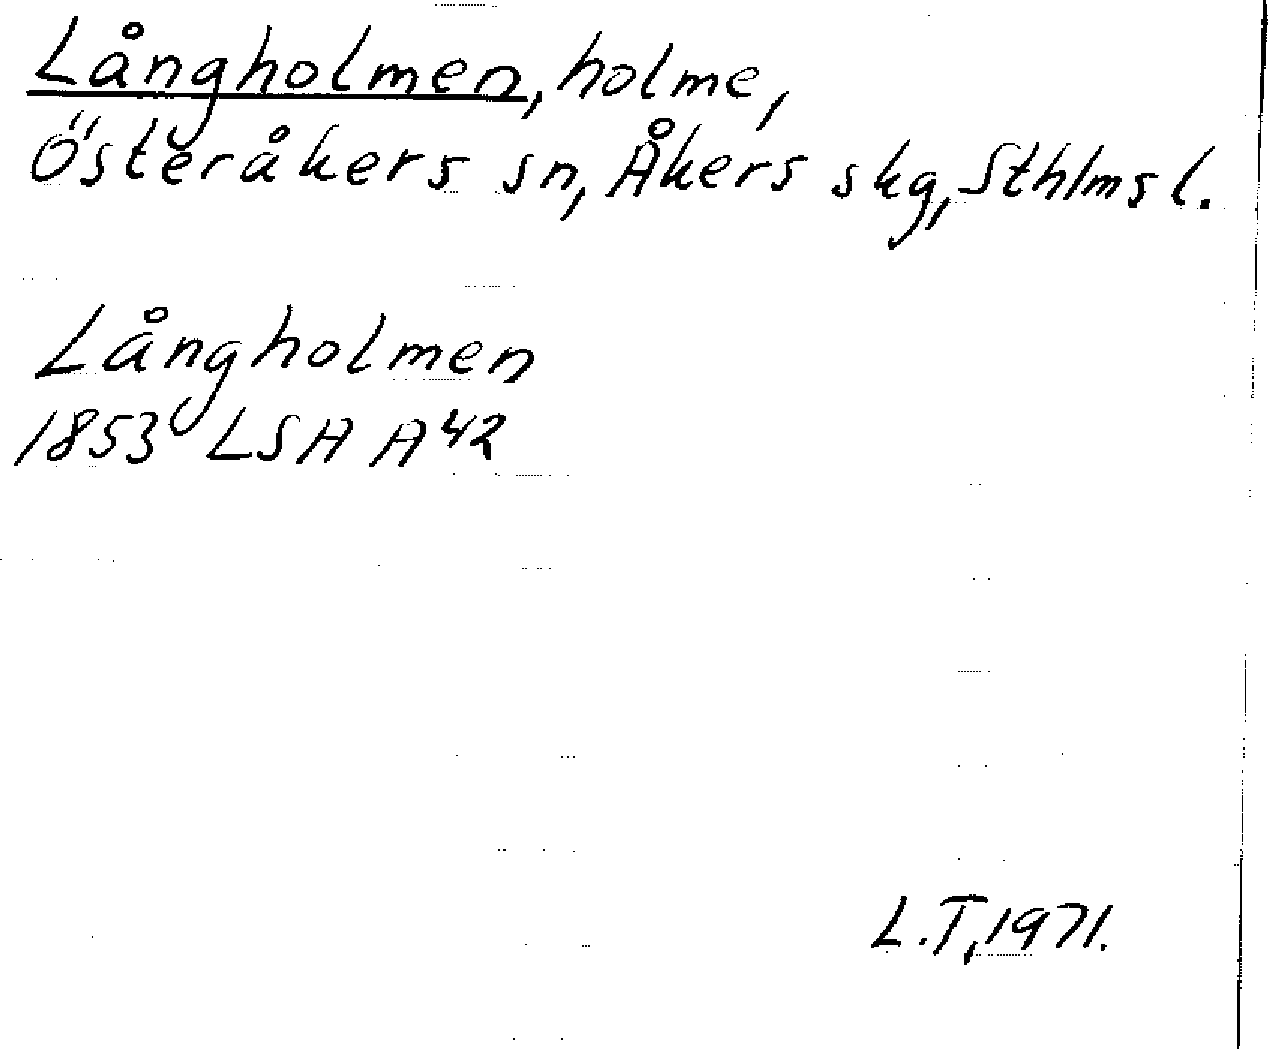 Långholmen, holme,
Österåkers sn, Åkers skg, Sthlms l.
Långholmen
1853 LSA A 42
L.T, 1971.